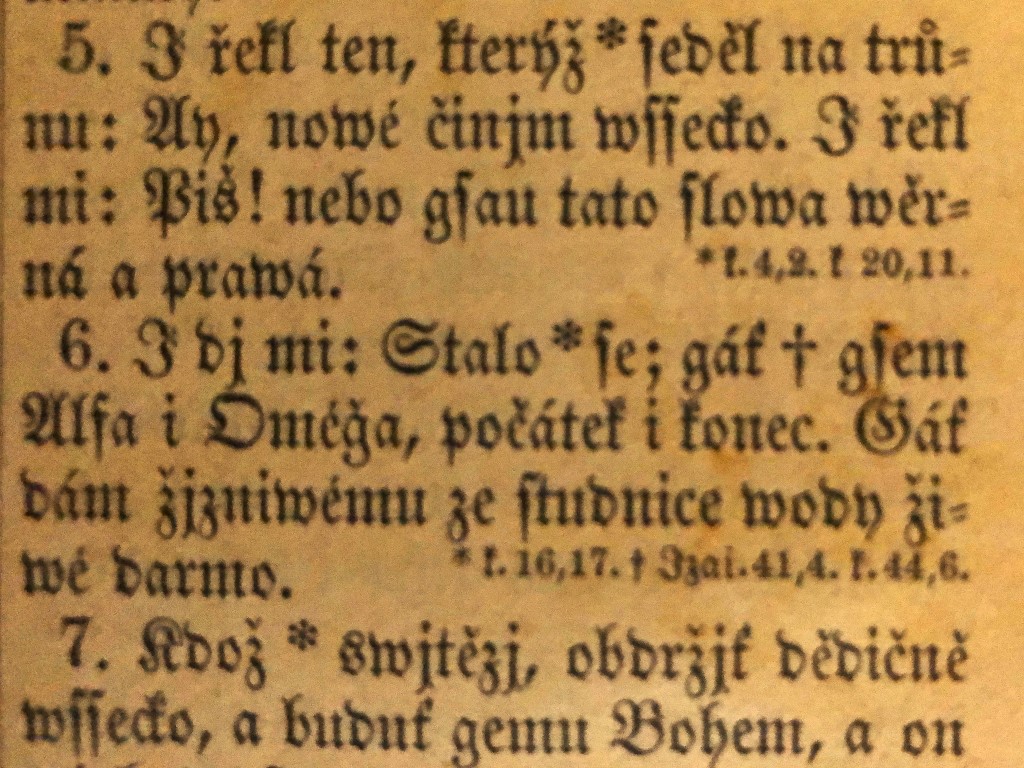 5. I řekl ten, kterýž * ſeděl na trů=
nu: Ay, nowé činjm wſſecko. I řekl
mi: Piš! nebo gſau tato ſlowa wěr=
ná a prawá. * k. 4,2. k 20,11.
6. I dj mi: Stalo * ſe; gáť † gſem
Alfa i Oméǧa, počátek i konec. Gáť
dám žjzniwému ze ſtudnice wody ži=
wé darmo. * k. 16,17. † Izai. 41,4. k. 44,6.
7. Kdož * swjtězj, obdržjť dědičně
wſſecko, a buduť gemu Bohem, a on